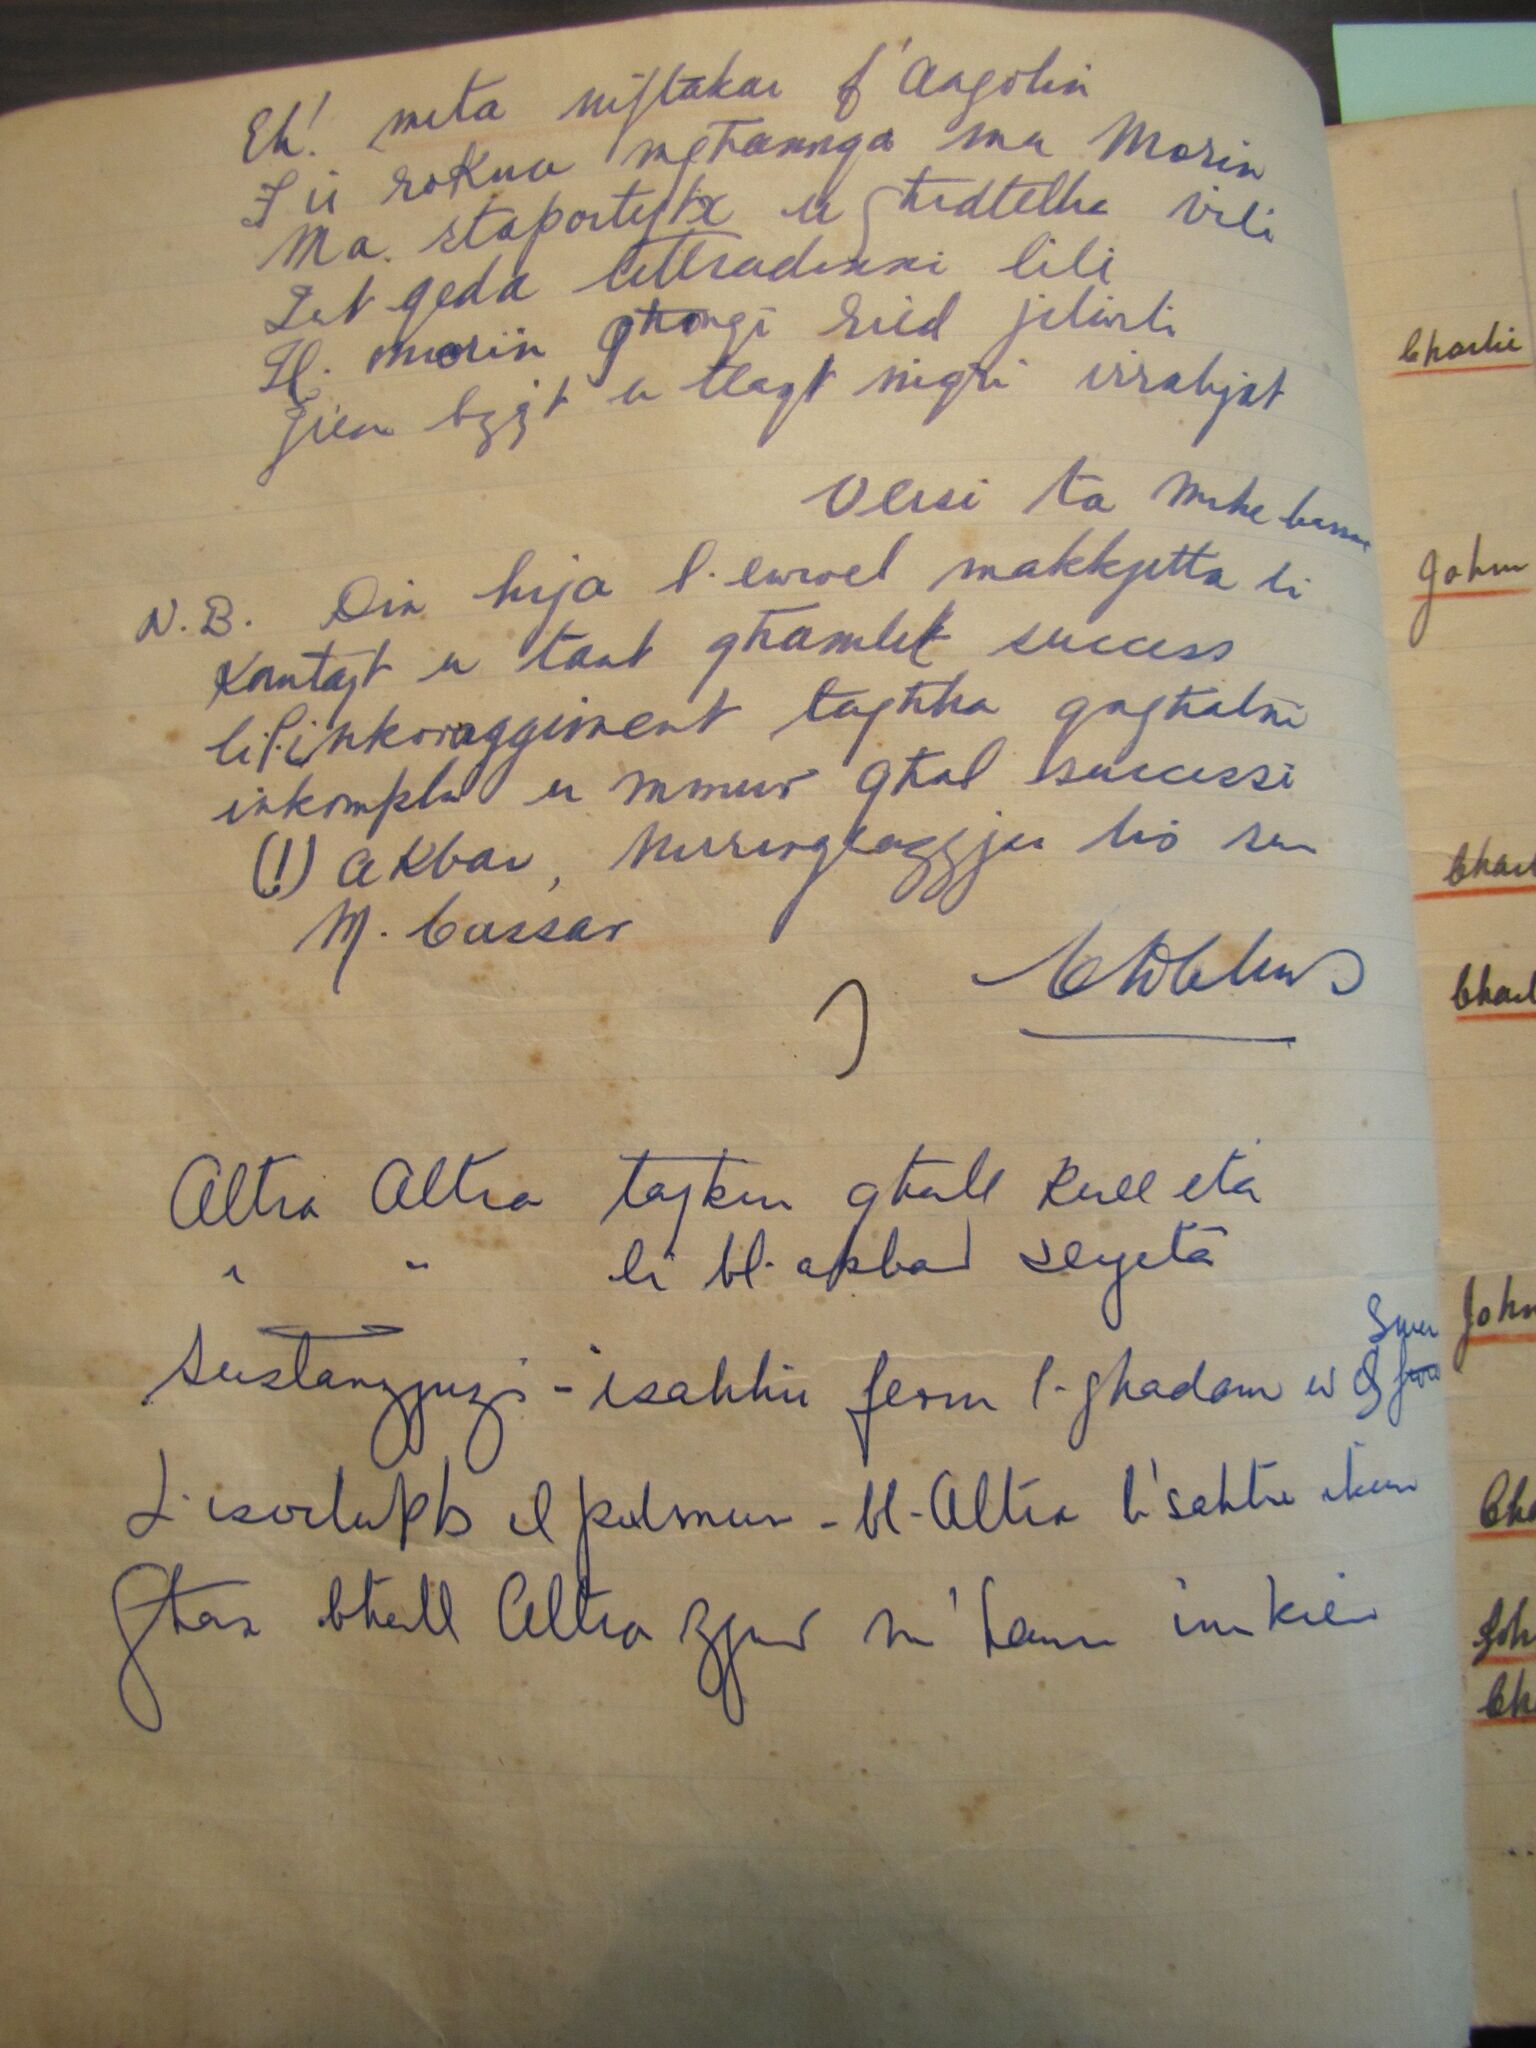 Eh! meta niftakar f'Angolin
rokna mghannqa ma Morin
Ma staportejtx u ghedtelha vili
qeda tittradixxi lili
Il. morin ghongi ried jilwili
Jien bzzjt u tlaqt niġri
Versi ta Mike Cassar
N.B. Din hija l. ewwel makkjetta li
Kantajt u tant ghamlet success
li l. inkoraggiment taghha qaghalni
inkompli u mmur ghal successi
(!) akbar, Nirringrazzja lis sur
M. Cassar
Altra Altra tajku ghall Kull eta
" " li bl. akbar serjeta
Sustanzjuzi - isahhu ferm l-ghadam u
Suw
L-isvilupp il pulmun - bl-Altra b'sahhtu ikun
Ghax bhall Altra zgur m'hawn imkien
Charlie
John
Charl
Charl
John
Cha
Joh
Ch